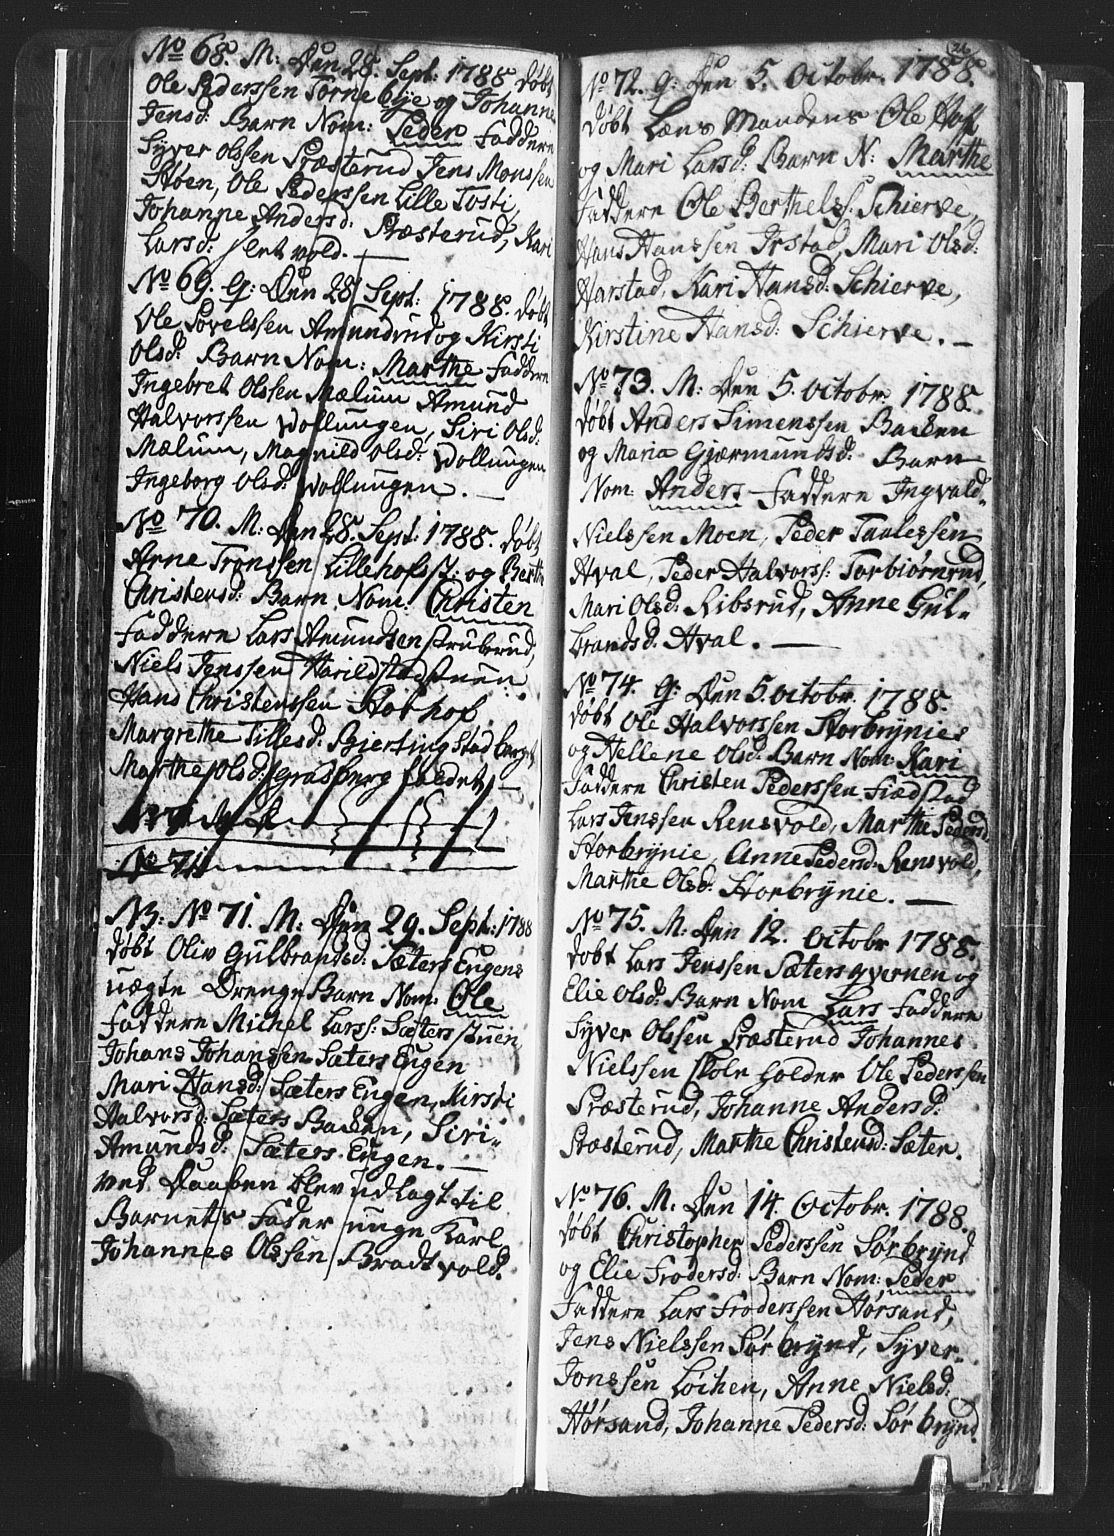 No 68. M: Den 28. Sept: 1788. døbt
Ole Pederssen Tornebye og Johanne
Jensd: Barn Nom: Peder Faddere
Syver Olssen Præsterud Jens Monssen
Stoen, Ole Pederssen Lille Tosti,
Johanne Andersd: Præsterud, Kari
Larsd:
No 69. g: Den 28 Sept: 1788. døbt
Ole Povelssen Amundrud og Kirsti
Olsd: Barn Nom: Marthe Faddere
Ingebret Olssen Mælum Amund
Halvorssen Wollungen, Siri Olsd:
Mælum, Magnild Olsd: Wollungen
Ingeborg Olsd: Wollungen.
No 70. M: Den 28. Sept: 1788. døbt
Arne Tronssen Lillehofst: og Berthe
Christensd: Barn Nom: Christen
Faddere Lars Amundsen Strubrud,
Niels Jenssen Harildstadstuen
Hans Christenssen Stoehof
Margrethe Tillesd:
Marthe Olsd: Grasberg Eedet
No 71
NB: No 71. M: Den 29. Sept: 1788
døbt Oliv Gulbrandsd: Sæters Eugens
uægte Drenge Barn Nom: Ole
Faddere Michel Larss: Sætersstuen
Johans Johanssen Sæters Eugen
Mari Hansd: Sæters Eugen, Kirsti
Halvorsd: Sæters Backen, Siri-
Amundsd: Sæters Eugen.
ved Daaben blev udlagt til
Barnets Fader unge Karl
Johannes Olssen Bradtvold.
26
No 72. g: Den 5. Octobr. 1788.
døbt Læns Mandens Ole Hof
og Mari Larsd: Barn N: Marthe
Faddere Ole Berthelss: Schierve,
Hans Hanssen Irstad, Mari Olsd:
Harstad, Kari Hansd: Schierve,
Kirstine Hansd: Schierve.
No 73. M: Den 5. Octobr. 1788.
døbt Anders Simenssen Backen
og Maria Gjærmundsd: Barn
Nom: Anders Faddere Ingvald-
Nielssen Moen, Peder Paulessen
Hval, Peder Halvorss: Torbiørnrud,
Mari Olsd: Ribsrud, Anne Gul-
brandsd: Hval.
No 74. g: Den 5. Octobr. 1788.
døbt Ole Halvorssen Storbrynies
og Hellene Olsd: Barn Nom: Kari
Faddere Christen Pederssen Fiædstad
Lars Jenssen Rensvold, Marthe Pedersd:
Storbrynie, Anne Pedersd: Rensvold,
Marthe Olsd: Storbrynie.
No 75. M: Den 12. Octobr 1788.
døbt Lars Jenssen Sætersqvernen og
Elie Olsd: Barn Nom Lars Faddere
Syver Olssen Præsterud Johannes
Nielssen Skole Holder Ole Pederssen
Præsterud, Johanne Andersd:
Præsterud, Marthe Christensd: Sæter.
No 76. M. Den 14. Octobr. 1788.
døbt Christopher Pederssen Sørbrynd
og Elie Frodersd: Barn Nom: Peder
Faddere Lars Froderssen Hørsand,
Jens Nielssen Sørbrynd, Syver-
Jonssen Løchen, Anne Nielsd:
Hørsand, Johanne Pedersd: Sørbrynd.